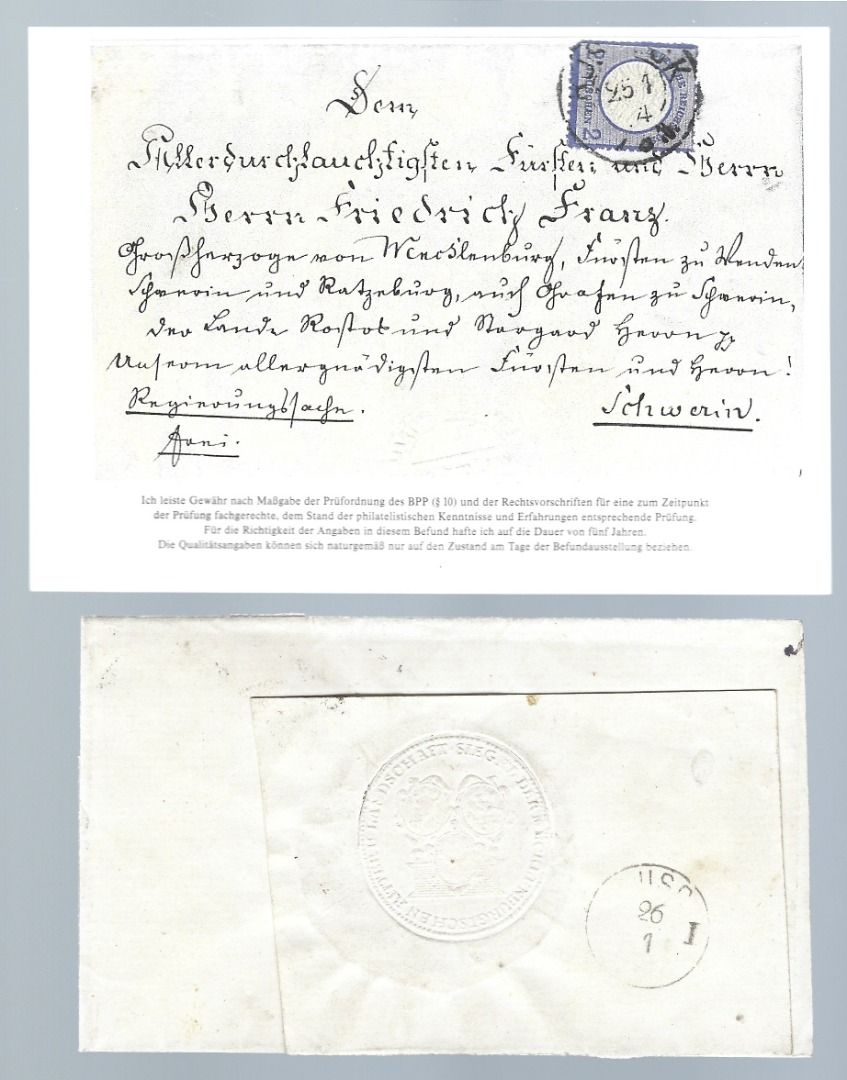 Dem
Allerdurchlauchtigsten Fürsten und Herrn
Herrn Friedrich Franz.
Großherzoge von Mecklenburg, Fürsten zu Wenden
Schwerin und Ratzeburg, auch Grafen zu Schwerin,
der Lande Rostok und Stargard Herrn pp
Unserm allergnädigsten Fürsten und Herrn!
Regierungssache.
Schwerin.
frei.
25 1
4
2
2
Ich leiste Gewähr nach Maßgabe der Prüfordnung des BPP (§ 10) und der Rechtsvorschriften für eine zum Zeitpunkt
der Prüfung fachgerechte, dem Stand der philatelistischen Kenntnisse und Erfahrungen entsprechende Prüfung.
Für die Richtigkeit der Angaben in diesem Befund hafte ich auf die Dauer von fünf Jahren.
Die Qualitätsangaben können sich naturgemäß nur auf den Zustand am Tage der Befundausstellung beziehen.
LANDSCHAFT
26
1
I